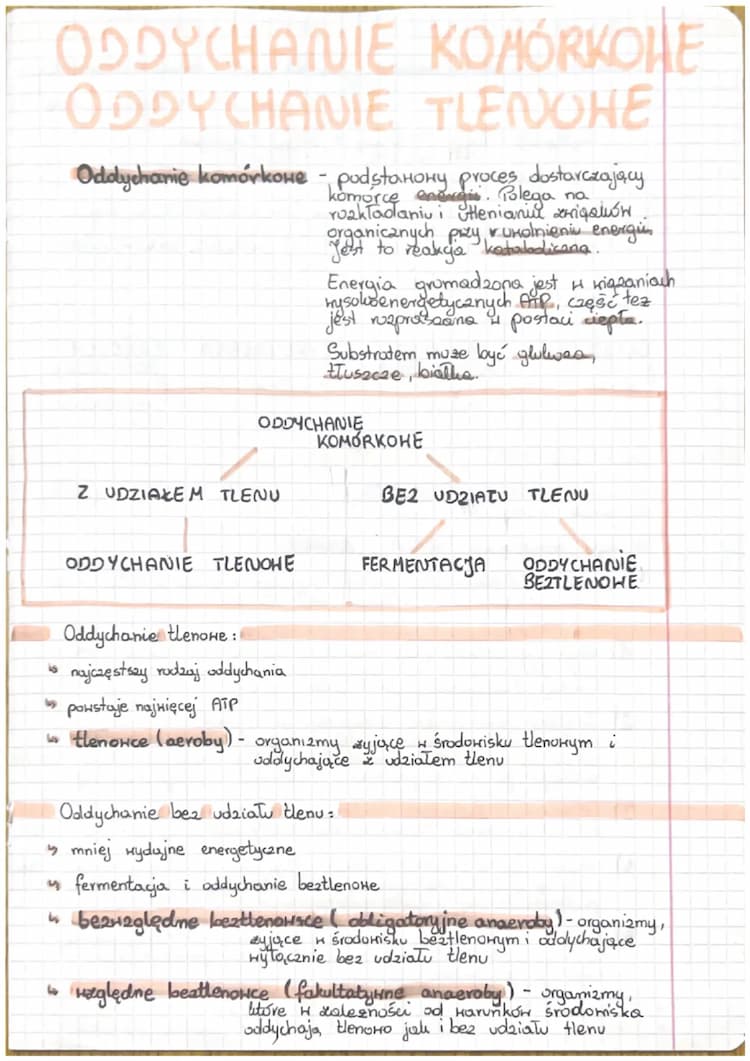 ODDYCHANIE KOMÓRKOWE
ODDYCHANIE TLENOWE
Oddychanie komórkowe - podstawowy proces dostarczający
komórce energii. Polega na
rozkładaniu i utlenianiu związków
organicznych przy uwolnieniu energii.
Jest to reakcja kataboliczna.
Energia gromadzona jest w wiązaniach
wysokoenergetycznych ATP, część też
jest rozpraszana w postaci ciepła.
Substratem może być glukoza,
tłuszcze, białka.
ODDYCHANIE
KOMÓRKOWE
Z UDZIAŁEM TLENU BEZ UDZIAŁU TLENU
ODDYCHANIE TLENOWE FERMENTACJA ODDYCHANIE
BEZTLENOWE
Oddychanie tlenowe:
↳ najczęstszy rodzaj oddychania
↳ powstaje najwięcej ATP
↳ tlenowce (aeroby) - organizmy żyjące w środowisku tlenowym i
oddychające z udziałem tlenu
Oddychanie bez udziału tlenu:
↳ mniej wydajne energetyczne
↳ fermentacja i oddychanie beztlenowe
↳ bezwzględne beztlenowsce (obligatoryjne anaeroby) - organizmy,
żyjące w środowisku beztlenowym i oddychające
wyłącznie bez udziału tlenu
↳ względne beztlenowce (fakultatywne anaeroby) - organizmy,
które w zależności od warunków środowiska
oddychają tlenowo jak i bez udziału tlenu